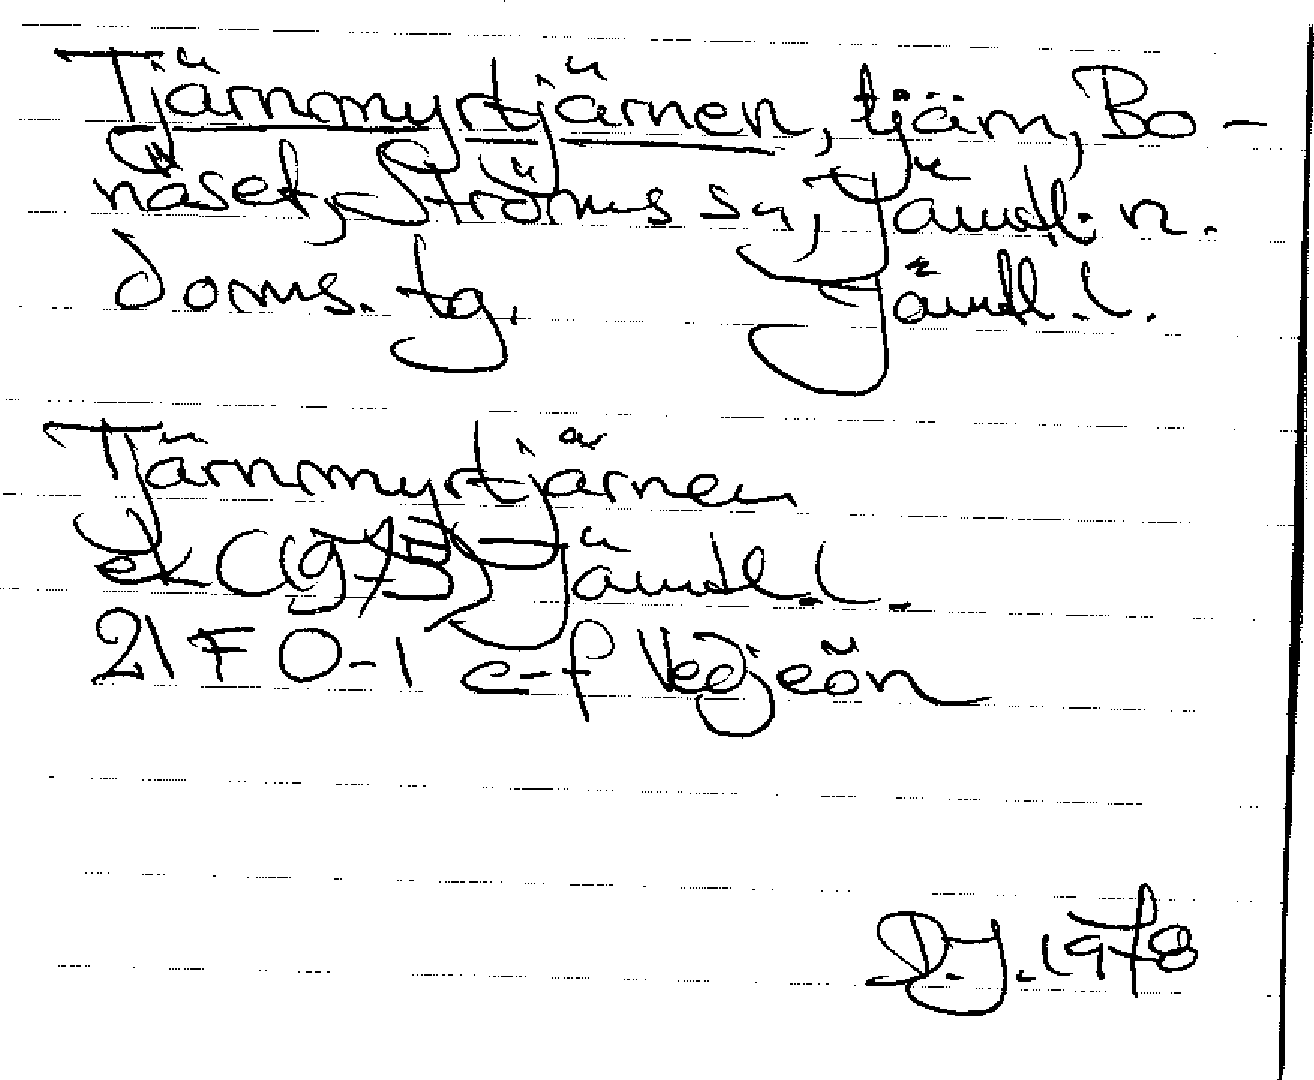 Tjärnmyrtjärnen, tjärn, Bo-
näset, Ströms sn, Jämtl. n.
doms. tg. Jämtl. l.
Tjärnmyrtjärnen
ek (1975) Jämtl. l.
21 F 0-1 e-f Vedjeön
D.J. 1978